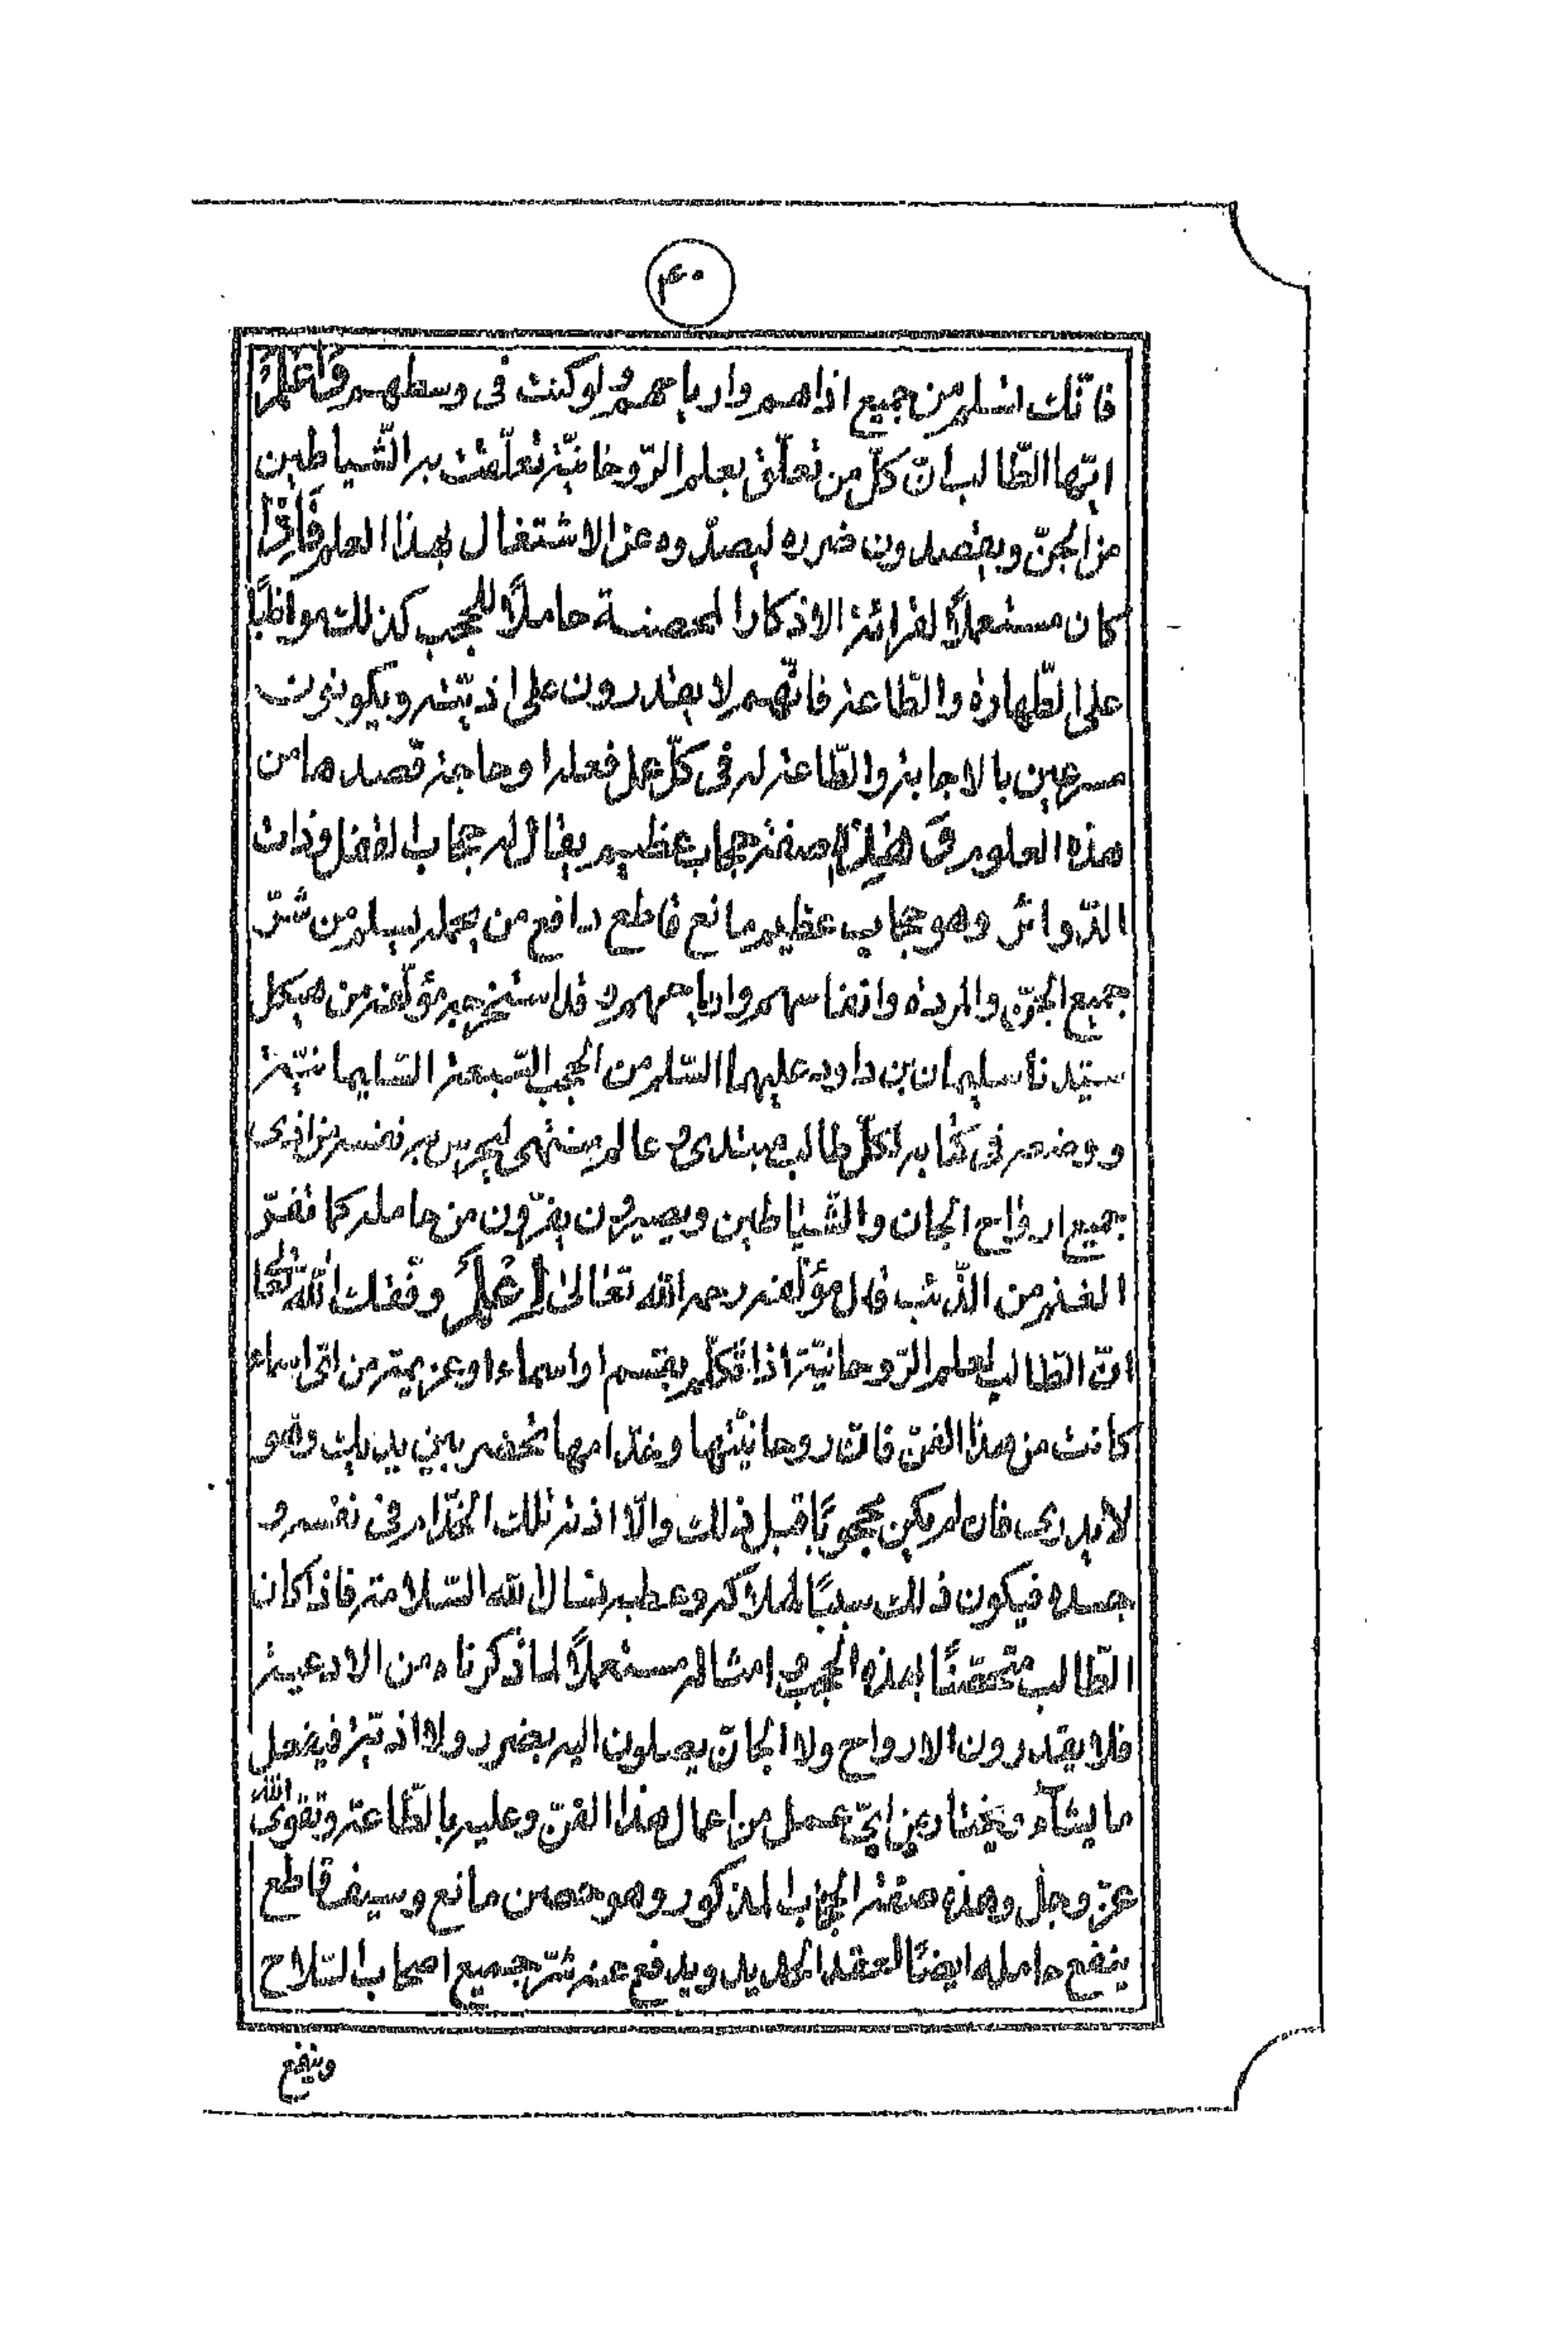 ۴۰
فانّك تسلم من جميع اذاهم وارباحهم ولو كنت فى وسطهم وَاعْلَمْ
ايّها الطّالب انّ كلّ من تعلّق بعلم الرّوحانيّة تعلّقت به الشّياطين
من الجنّ ويقصدون ضرره ليصدّوه عن الاشتغال بهذا العلم فَاِذَا
كان مستعملاً لقرائة الاذكار المحصنة حاملاً للحجب كذلك مواظبًا
على الطّهارة والطّاعة فانّهم لا يقدرون على اذيّته ويكونون
مسرعين بالاجابة والطّاعة له فى كلّ عمل فعله او حاجة قصدها من
هذه العلوم وَهٰذِهِ صفة حجاب عظيم يقال له حجاب القفل وذات
الدّوائر وهو حجاب عظيم مانع قاطع دافع من يحمله يسلم من شرّ
جميع الجنّ والمردة وانفاسهم وارياحهم وقد استخرجه مؤلّفه من هيكل
سيّدنا سليمان بن داود عليهما السّلم من الحجب السّبعة السّليمانيّة
ووضعه فى كتابه لكلّ طالب مبتدى وعالم منتهى ليحرس به نفسه من اذى
جميع ارواح الجان والشّياطين ويصيرون يفرّون من حامله كما تفرّ
الغنم من الذّئب قال مؤلّفه رحمه الله تعالىٰ اِعْلَمْ وفّقك اللّٰه تعا
انّ الطّالب لعلم الرّوحانيّة اذا تكلّم بقسم او اسماء او عزيمة من اىّ اسماء
كانت من هذا الفنّ فانّ روحانيّتها وخدّامها تحضر بين يديه وهو
لا يدرى فان لم يكن محجوبًا قبل ذلك والّا اذته تلك الخدّام فى نفسه و
جسده فيكون ذلك سببًا لهلاكه وعطبه نسال الله السّلامة فاذا كان
الطّالب متحصّنًا بهذه الحجب وامثاله مستعملاً لما ذكرناه من الادعية
فلا يقدرون الارواح ولا الجانّ يصلون اليه بضرر ولا اذيّة فيفعل
ما يشآء ويختار من اىّ عمل من اعمال هذا الفنّ وعليه بالطّاعة وتقوى اللّٰه
عزّ وجلّ وهذه صفة الحجاب المذكور وهو حصن مانع وسيف قاطع
ينفع حامله ايضًا لعقد الحديد ويدفع عنه شرّ جميع اصحاب السّلاح
وينفع